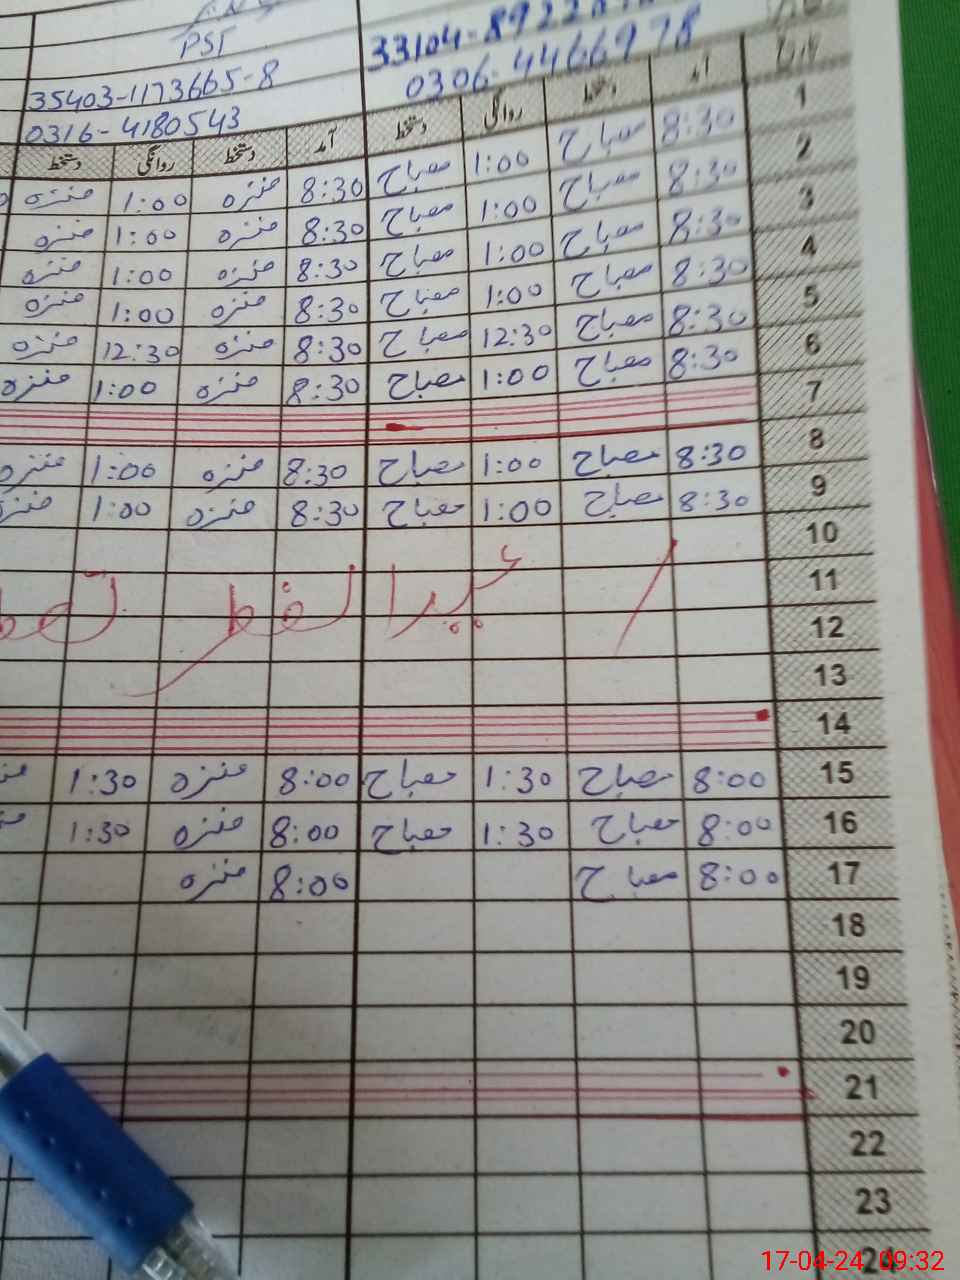 PST
33104-8922
35403-1173665-8
0306-4466978
0316-4180543
آمد دستخط روانگی دستخط آمد دستخط روانگی دستخط
1 8:30 مصباح 1:00 مصباح 8:30 منزہ 1:00 منزہ
2 8:30 مصباح 1:00 مصباح 8:30 منزہ 1:00 منزہ
3 8:30 مصباح 1:00 مصباح 8:30 منزہ 1:00 منزہ
4 8:30 مصباح 1:00 مصباح 8:30 منزہ 1:00 منزہ
5 8:30 مصباح 12:30 مصباح 8:30 منزہ 12:30 منزہ
6 8:30 مصباح 1:00 مصباح 8:30 منزہ 1:00 منزہ
7
8 8:30 مصباح 1:00 مصباح 8:30 منزہ 1:00 منزہ
9 8:30 مصباح 1:00 مصباح 8:30 منزہ 1:00 منزہ
10
11 عید الفطر
12
13
14
15 8:00 مصباح 1:30 مصباح 8:00 منزہ 1:30
16 8:00 مصباح 1:30 مصباح 8:00 منزہ 1:30
17 8:00 مصباح 8:00 منزہ
18
19
20
21
22
23
24
17-04-24 09:32